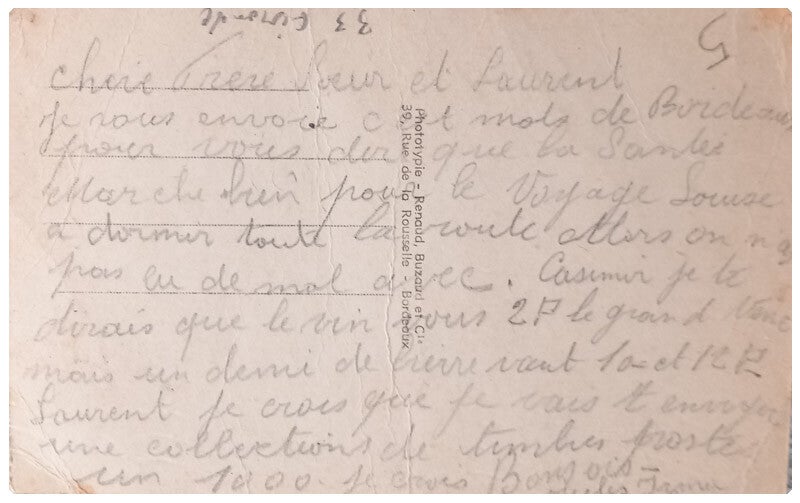 33 Gironde
chère Frere Sœur et Laurent
je vous envoie c et mots de Bordeaux
pour vous dir que la Santé
Marche bien pour le Voyage Louise
a dormir toute la route Alors on n a
pas eu de mal avec. Casimir je te
dirais que le vin vous 2F le grand
mais un demi de bierre vaut 10 et 12 F
Laurent je crois que je vais t envoyer
une collections de timbre poste
un 1000. je crois
Phototypie - Renaud, Buzaud et Cie
39, Rue de la Rousselle - Bordeaux